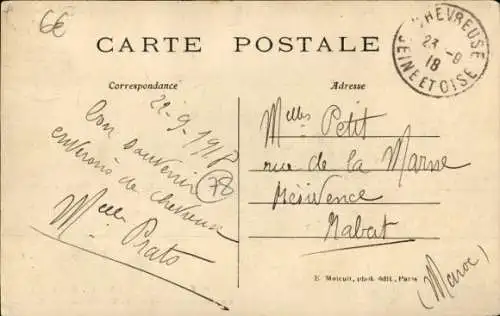 6€
CARTE POSTALE
CHEVREUSE
23 - 9
18
SEINE ET OISE
Correspondance
Adresse
22-9-1918
Bon souvenir
environs de Chevreuse
78
Melle Prats
Melles Petit
rue de la Marne
Résidence
Rabat
(Maroc)
phot. édit., Paris